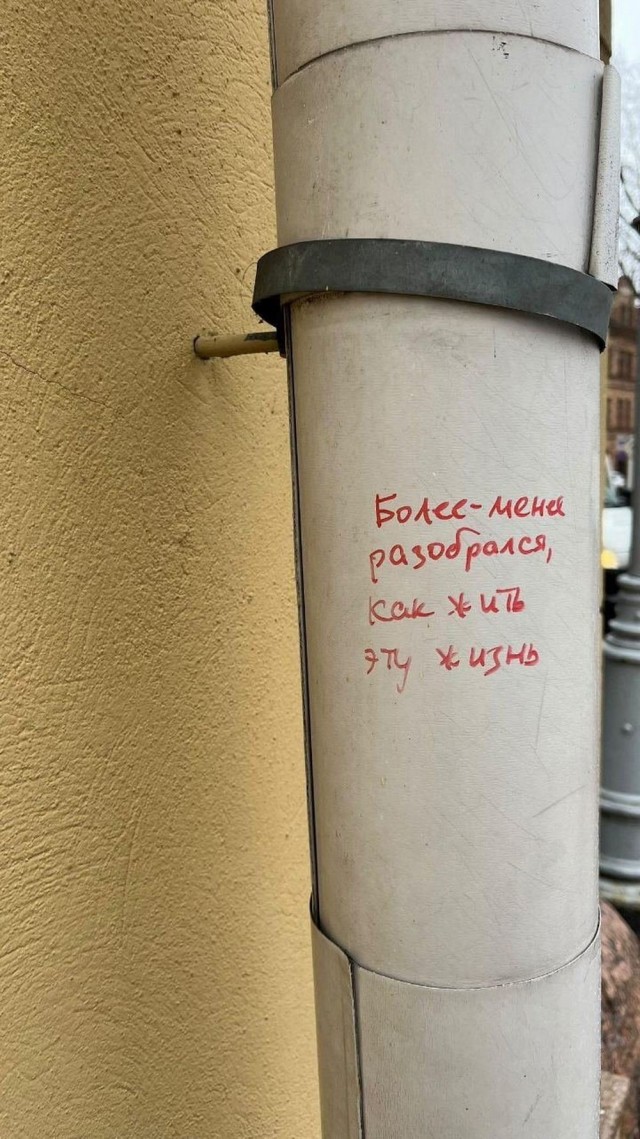 Более-менее
разобрался,
как жить
эту жизнь